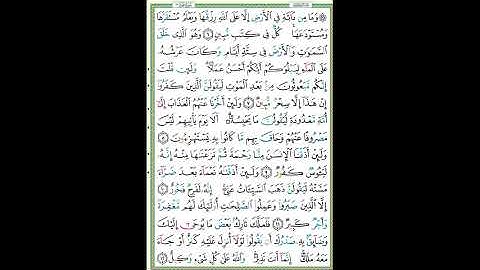 ۞ وَمَا مِن دَآبَّةٍ فِي ٱلْأَرْضِ إِلَّا عَلَى ٱللَّهِ رِزْقُهَا وَيَعْلَمُ مُسْتَقَرَّهَا
وَمُسْتَوْدَعَهَا كُلٌّ فِي كِتَٰبٍ مُّبِينٍ ٦ وَهُوَ ٱلَّذِي خَلَقَ
ٱلسَّمَٰوَٰتِ وَٱلْأَرْضَ فِي سِتَّةِ أَيَّامٍ وَكَانَ عَرْشُهُۥ
عَلَى ٱلْمَآءِ لِيَبْلُوَكُمْ أَيُّكُمْ أَحْسَنُ عَمَلًا وَلَئِن قُلْتَ
إِنَّكُم مَّبْعُوثُونَ مِنۢ بَعْدِ ٱلْمَوْتِ لَيَقُولَنَّ ٱلَّذِينَ كَفَرُوٓا۟
إِنْ هَٰذَآ إِلَّا سِحْرٌ مُّبِينٌ ٧ وَلَئِنْ أَخَّرْنَا عَنْهُمُ ٱلْعَذَابَ إِلَىٰٓ
أُمَّةٍ مَّعْدُودَةٍ لَّيَقُولُنَّ مَا يَحْبِسُهُۥٓ أَلَا يَوْمَ يَأْتِيهِمْ لَيْسَ
مَصْرُوفًا عَنْهُمْ وَحَاقَ بِهِم مَّا كَانُوا۟ بِهِۦ يَسْتَهْزِءُونَ ٨
وَلَئِنْ أَذَقْنَا ٱلْإِنسَٰنَ مِنَّا رَحْمَةً ثُمَّ نَزَعْنَٰهَا مِنْهُ إِنَّهُۥ
لَيَـُٔوسٌ كَفُورٌ ٩ وَلَئِنْ أَذَقْنَٰهُ نَعْمَآءَ بَعْدَ ضَرَّآءَ
مَسَّتْهُ لَيَقُولَنَّ ذَهَبَ ٱلسَّيِّـَٔاتُ عَنِّيٓ إِنَّهُۥ لَفَرِحٌ فَخُورٌ ١٠
إِلَّا ٱلَّذِينَ صَبَرُوا۟ وَعَمِلُوا۟ ٱلصَّٰلِحَٰتِ أُو۟لَٰٓئِكَ لَهُم مَّغْفِرَةٌ
وَأَجْرٌ كَبِيرٌ ١١ فَلَعَلَّكَ تَارِكٌۢ بَعْضَ مَا يُوحَىٰٓ إِلَيْكَ
وَضَآئِقٌۢ بِهِۦ صَدْرُكَ أَن يَقُولُوا۟ لَوْلَآ أُنزِلَ عَلَيْهِ كَنزٌ أَوْ جَآءَ
مَعَهُۥ مَلَكٌ إِنَّمَآ أَنتَ نَذِيرٌ وَٱللَّهُ عَلَىٰ كُلِّ شَيْءٍ وَكِيلٌ ١٢